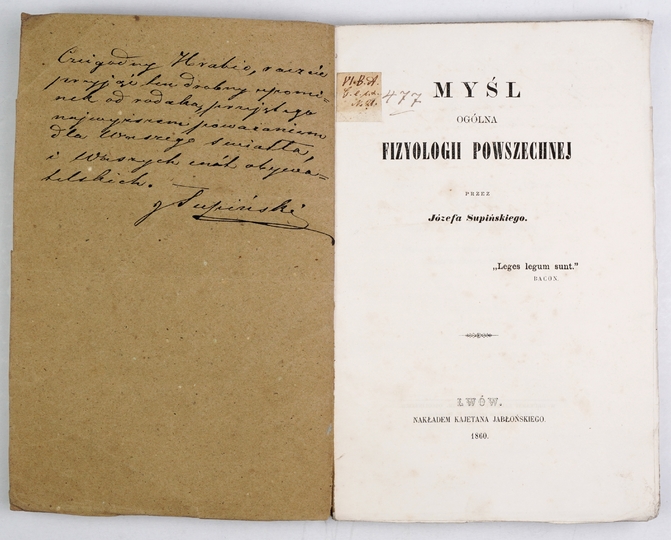 Czcigodny Hrabio, raczcie
przyjąć ten drobny upomi-
nek od rodaka, przejętego
najwyższem poważaniem
dla Waszego światła,
i Waszych cnót obywa-
telskich.
J Supiński
477
MYŚL
OGÓLNA
FIZYOLOGII POWSZECHNEJ
PRZEZ
Józefa Supińskiego.
„Leges legum sunt.”
BACON.
LWÓW.
NAKŁADEM KAJETANA JABŁOŃSKIEGO.
1860.